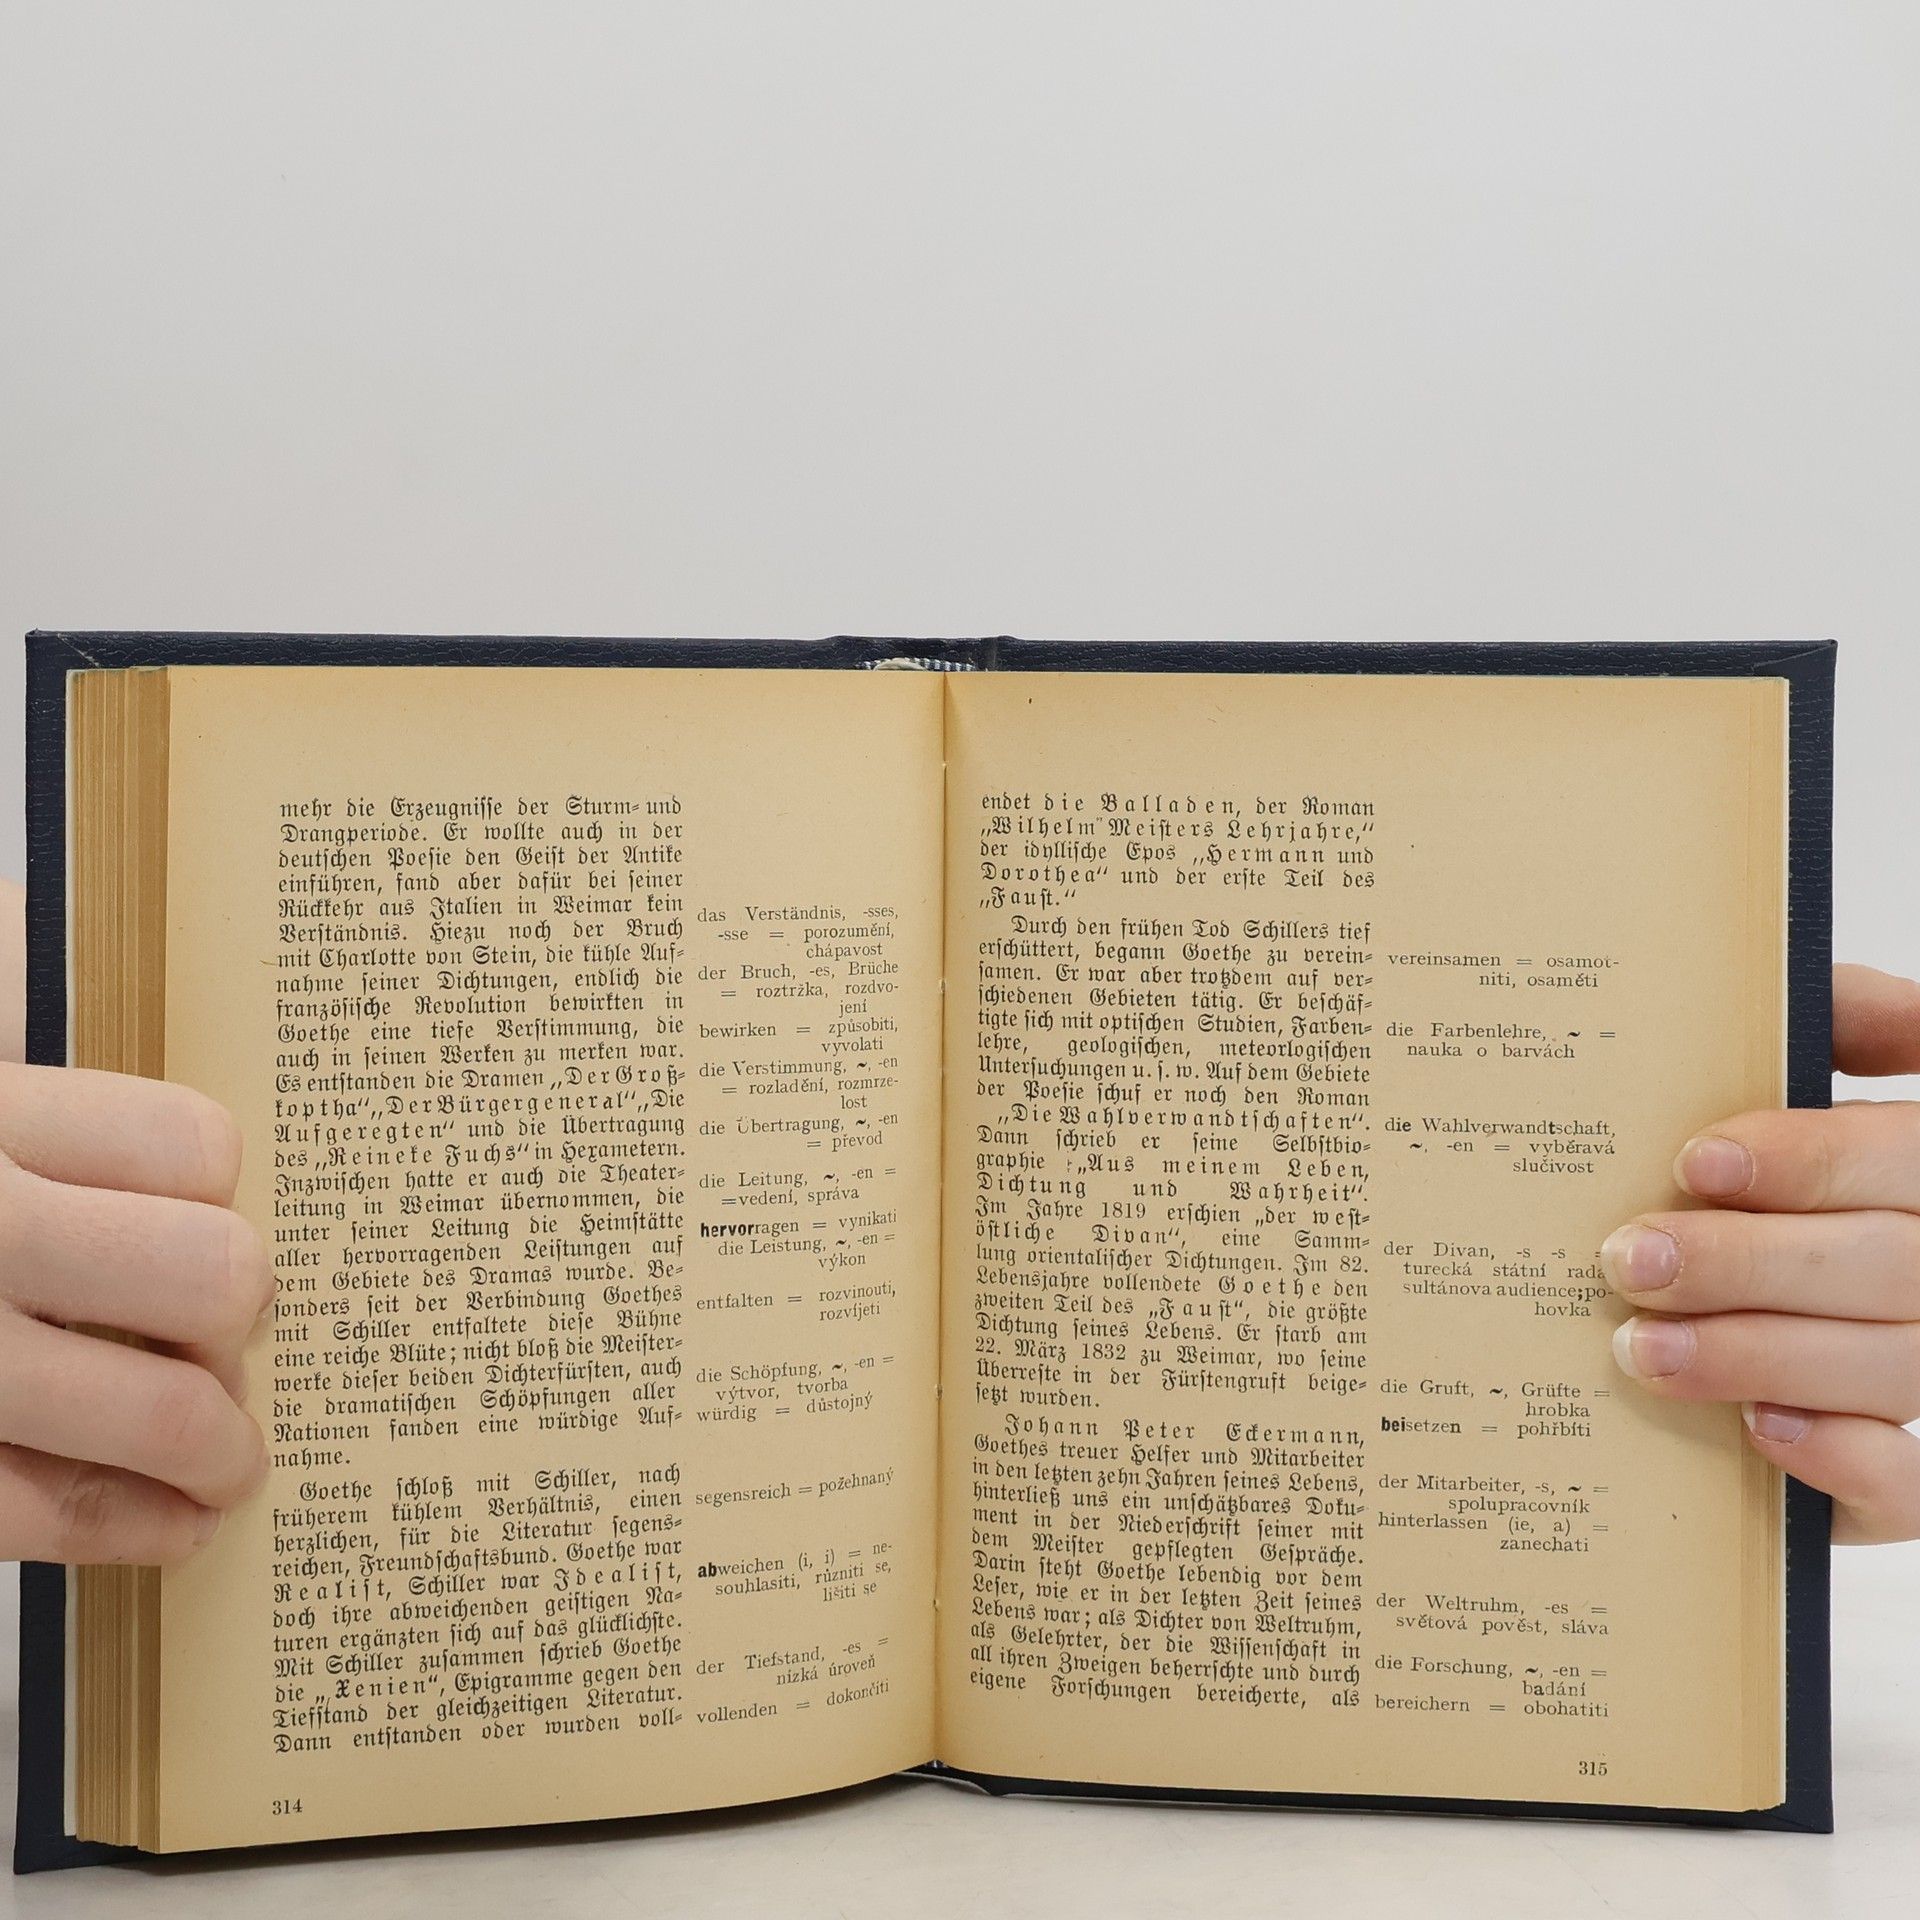 mehr die Erzeugnisse der Sturm- und
Drangperiode. Er wollte auch in der
deutschen Poesie den Geist der Antike
einführen, fand aber dafür bei seiner
Rückkehr aus Italien in Weimar kein
Verständnis. Hiezu noch der Bruch
mit Charlotte von Stein, die kühle Auf-
nahme seiner Dichtungen, endlich die
französische Revolution bewirkten in
Goethe eine tiefe Verstimmung, die
auch in seinen Werken zu merken war.
Es entstanden die Dramen „Der Groß-
koptha“ „Der Bürgergeneral“ „Die
Aufgeregten“ und die Übertragung
des „Reineke Fuchs“ in Hexametern.
Inzwischen hatte er auch die Theater-
leitung in Weimar übernommen, die
unter seiner Leitung die Heimstätte
aller hervorragenden Leistungen auf
dem Gebiete des Dramas wurde. Be-
sonders seit der Verbindung Goethes
mit Schiller entfaltete diese Bühne
eine reiche Blüte; nicht bloß die Meister-
werke dieser beiden Dichterfürsten, auch
die dramatischen Schöpfungen aller
Nationen fanden eine würdige Auf-
nahme.
Goethe schloß mit Schiller, nach
früherem kühlem Verhältnis, einen
herzlichen, für die Literatur segens-
reichen, Freundschaftsbund. Goethe war
Realist, Schiller war Idealist,
doch ihre abweichenden geistigen Na-
turen ergänzten sich auf das glücklichste.
Mit Schiller zusammen schrieb Goethe
die „Xenien“, Epigramme gegen den
Tiefstand der gleichzeitigen Literatur.
Dann entstanden oder wurden voll-
das Verständnis, -sses,
-sse = porozumění,
chápavost
der Bruch, -es, Brüche
= roztržka, rozdvo-
jení
bewirken = způsobiti,
vyvolati
die Verstimmung, ~, -en
= rozladění, rozmrze-
lost
die Übertragung, ~, -en
= převod
die Leitung, ~, -en =
=vedení, správa
hervorragen = vynikati
die Leistung, ~, -en =
výkon
entfalten = rozvinouti,
rozvíjeti
die Schöpfung, ~, -en =
výtvor, tvorba
würdig = důstojný
segensreich = požehnaný
abweichen (i, i) = ne-
souhlasiti, různiti se,
lišiti se
der Tiefstand, -es =
nízká úroveň
vollenden = dokončiti
314
endet die Balladen, der Roman
„Wilhelm" Meisters Lehrjahre,“
der idyllische Epos „Hermann und
Dorothea“ und der erste Teil des
„Faust.“
Durch den frühen Tod Schillers tief
erschüttert, begann Goethe zu verein-
samen. Er war aber trotzdem auf ver-
schiedenen Gebieten tätig. Er beschäf-
tigte sich mit optischen Studien, Farben-
lehre, geologischen, meteorlogischen
Untersuchungen u. s. w. Auf dem Gebiete
der Poesie schuf er noch den Roman
„Die Wahlverwandtschaften“.
Dann schrieb er seine Selbstbio-
graphie „Aus meinem Leben,
Dichtung und Wahrheit“.
Im Jahre 1819 erschien „der west-
östliche Divan“, eine Samm-
lung orientalischer Dichtungen. Im 82.
Lebensjahre vollendete Goethe den
zweiten Teil des „Faust“, die größte
Dichtung seines Lebens. Er starb am
22. März 1832 zu Weimar, wo seine
Überreste in der Fürstengruft beige-
setzt wurden.
Johann Peter Eckermann,
Goethes treuer Helfer und Mitarbeiter
in den letzten zehn Jahren seines Lebens,
hinterließ uns ein unschätzbares Doku-
ment in der Niederschrift seiner mit
dem Meister gepflegten Gespräche.
Darin steht Goethe lebendig vor dem
Leser, wie er in der letzten Zeit seines
Lebens war; als Dichter von Weltruhm,
als Gelehrter, der die Wissenschaft in
all ihren Zweigen beherrschte und durch
eigene Forschungen bereicherte, als
vereinsamen = osamot-
niti, osaměti
die Farbenlehre, ~ =
nauka o barvách
die Wahlverwandtschaft,
~, -en = vyběravá
slučivost
der Divan, -s -s =
turecká státní rada
sultánova audience; po-
hovka
die Gruft, ~, Grüfte =
hrobka
beisetzen = pohřbíti
der Mitarbeiter, -s, ~ =
spolupracovník
hinterlassen (ie, a) =
zanechati
der Weltruhm, -es =
světová pověst, sláva
die Forschung, ~, -en =
badání
bereichern = obohatiti
315